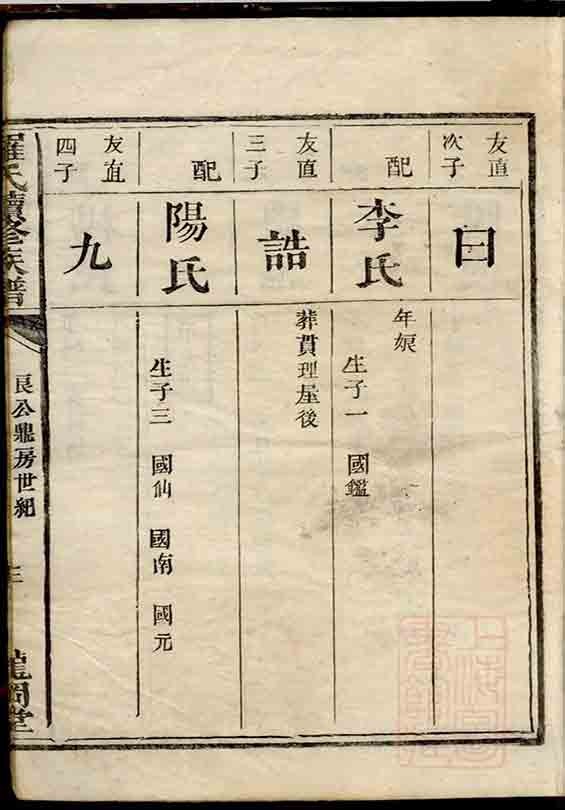 友直
次子
曰
配
李氏
年娘
生子一 國鑑
友直
三子
誥
葬貫理屋後
配
陽氏
生子三 國仙 國南 國元
友直
四子
九
羅氏續修族譜
良公鼎房世紀
三
龍岡堂